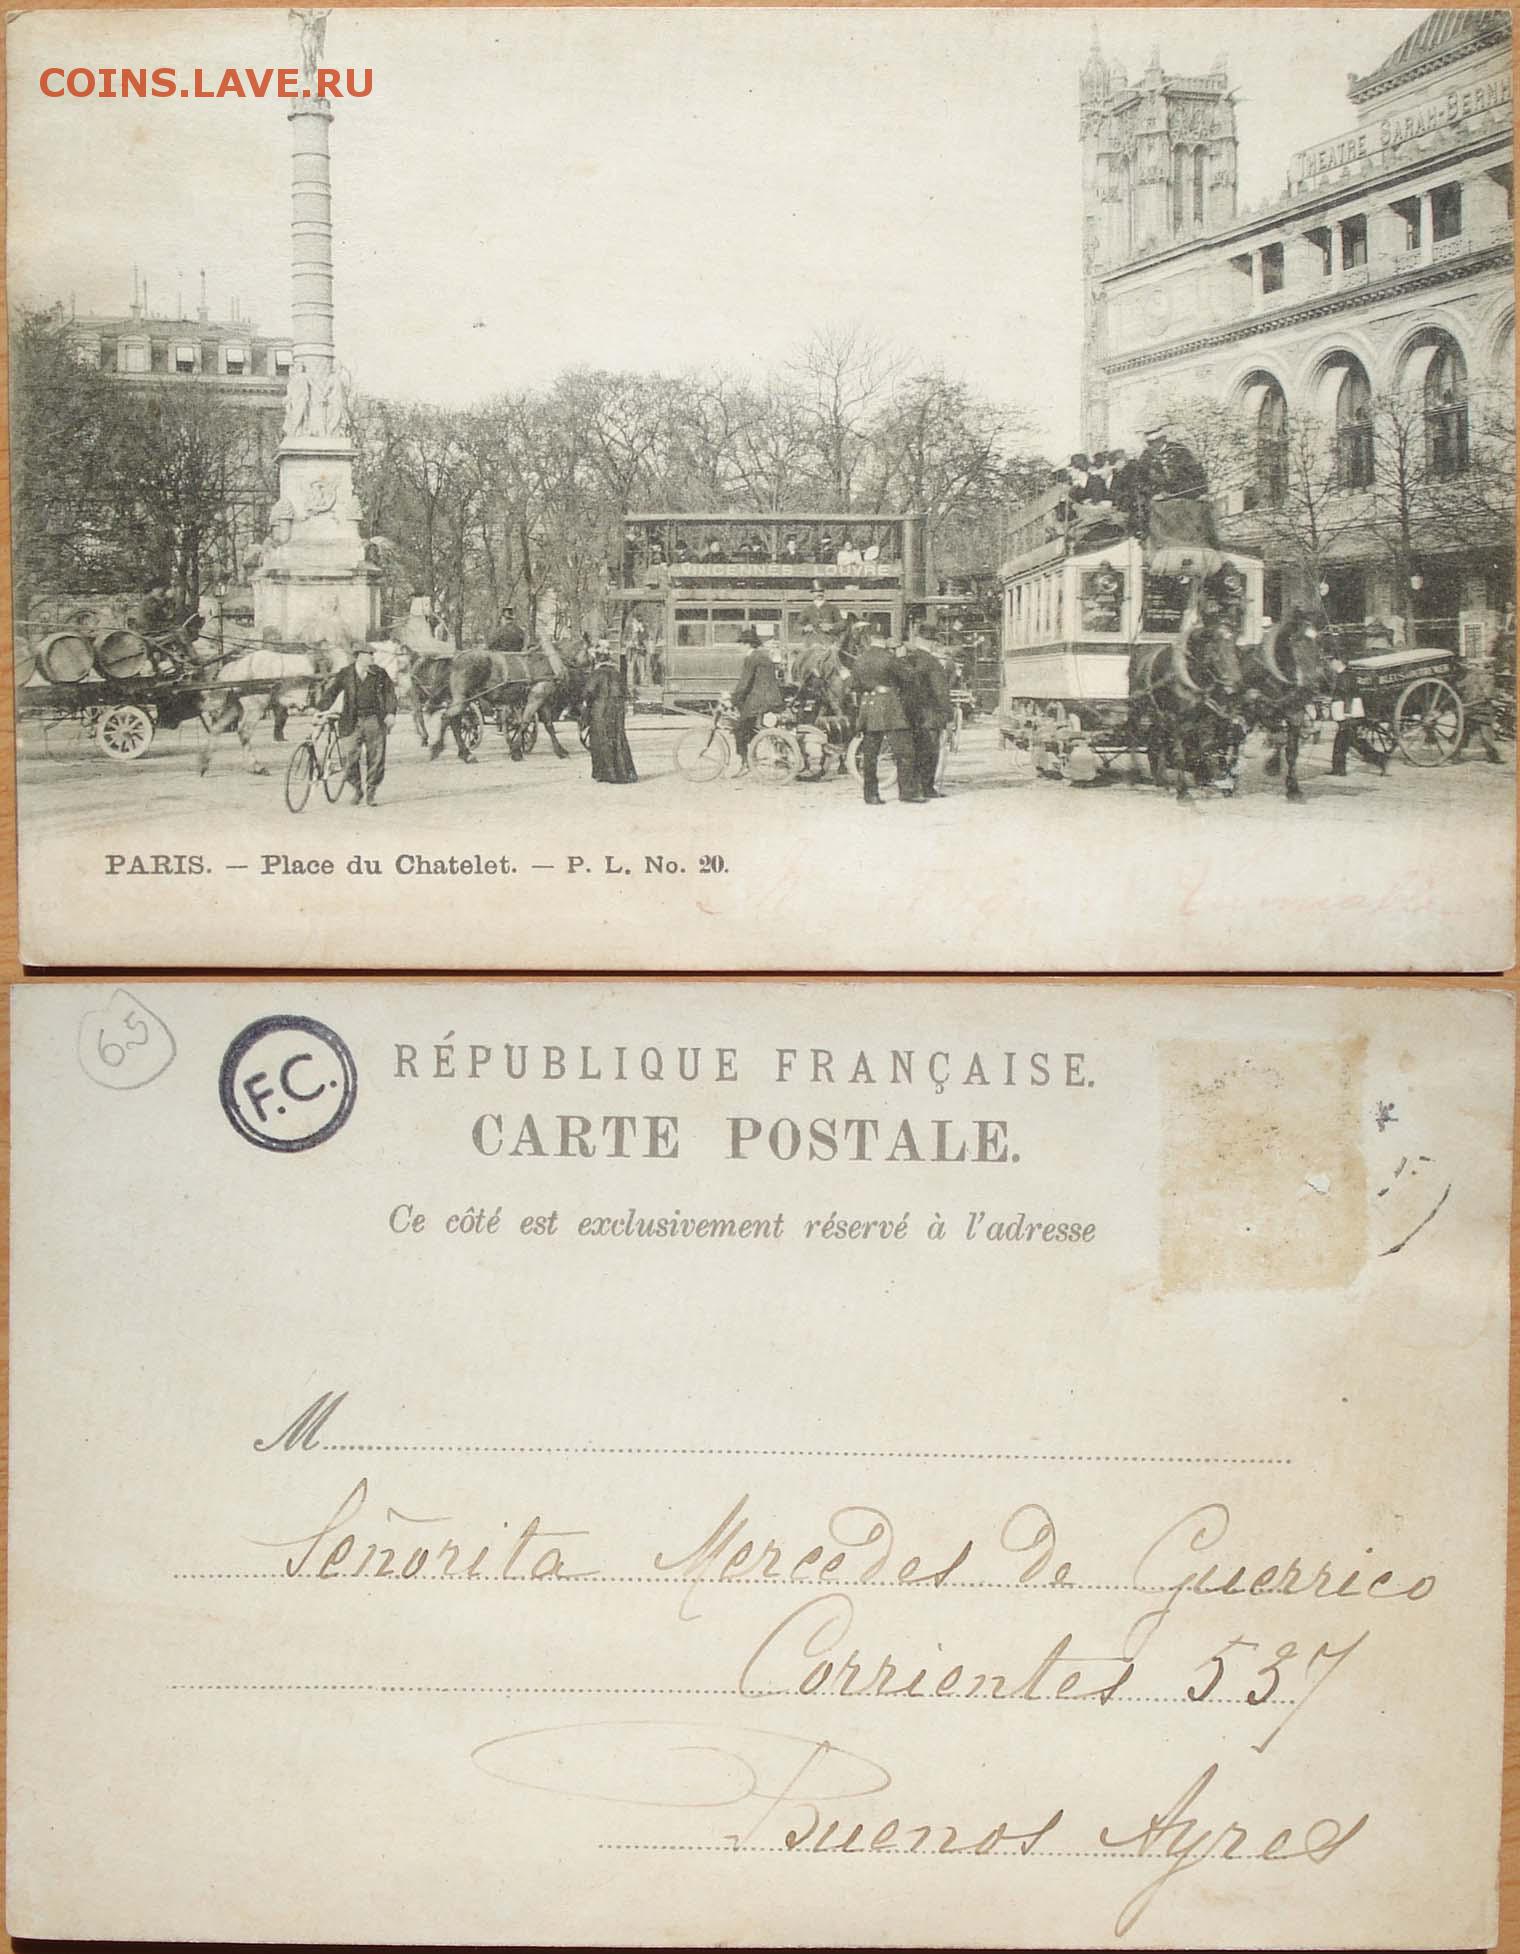 COINS.LAVE.RU
THEATRE SARAH-BERNH
VINCENNES - LOUVRE
PARIS. — Place du Chatelet. — P. L. No. 20.
65
F.C.
RÉPUBLIQUE FRANÇAISE.
CARTE POSTALE.
Ce côté est exclusivement réservé à l'adresse
M
Señorita Mercedes de Guerrico
Corrientes 537
Buenos Ayres